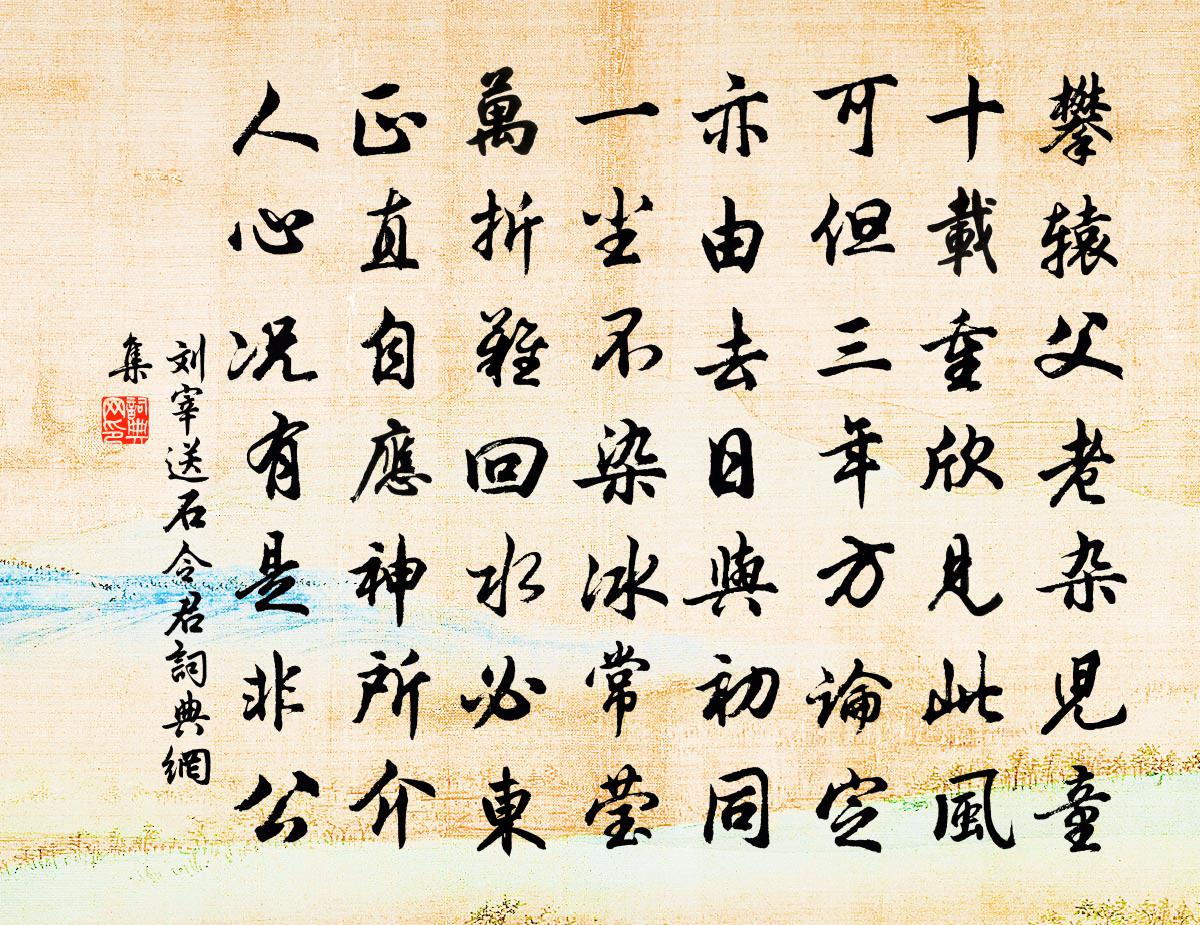 攀辕父老杂児童
十載重欣見此風
可但三年方論定
亦由去日與初同
一尘不染冰常莹
萬折難回水必東
正直自應神所介
人心况有是非公
刘宰送石令君詞典網
集
詞典网印